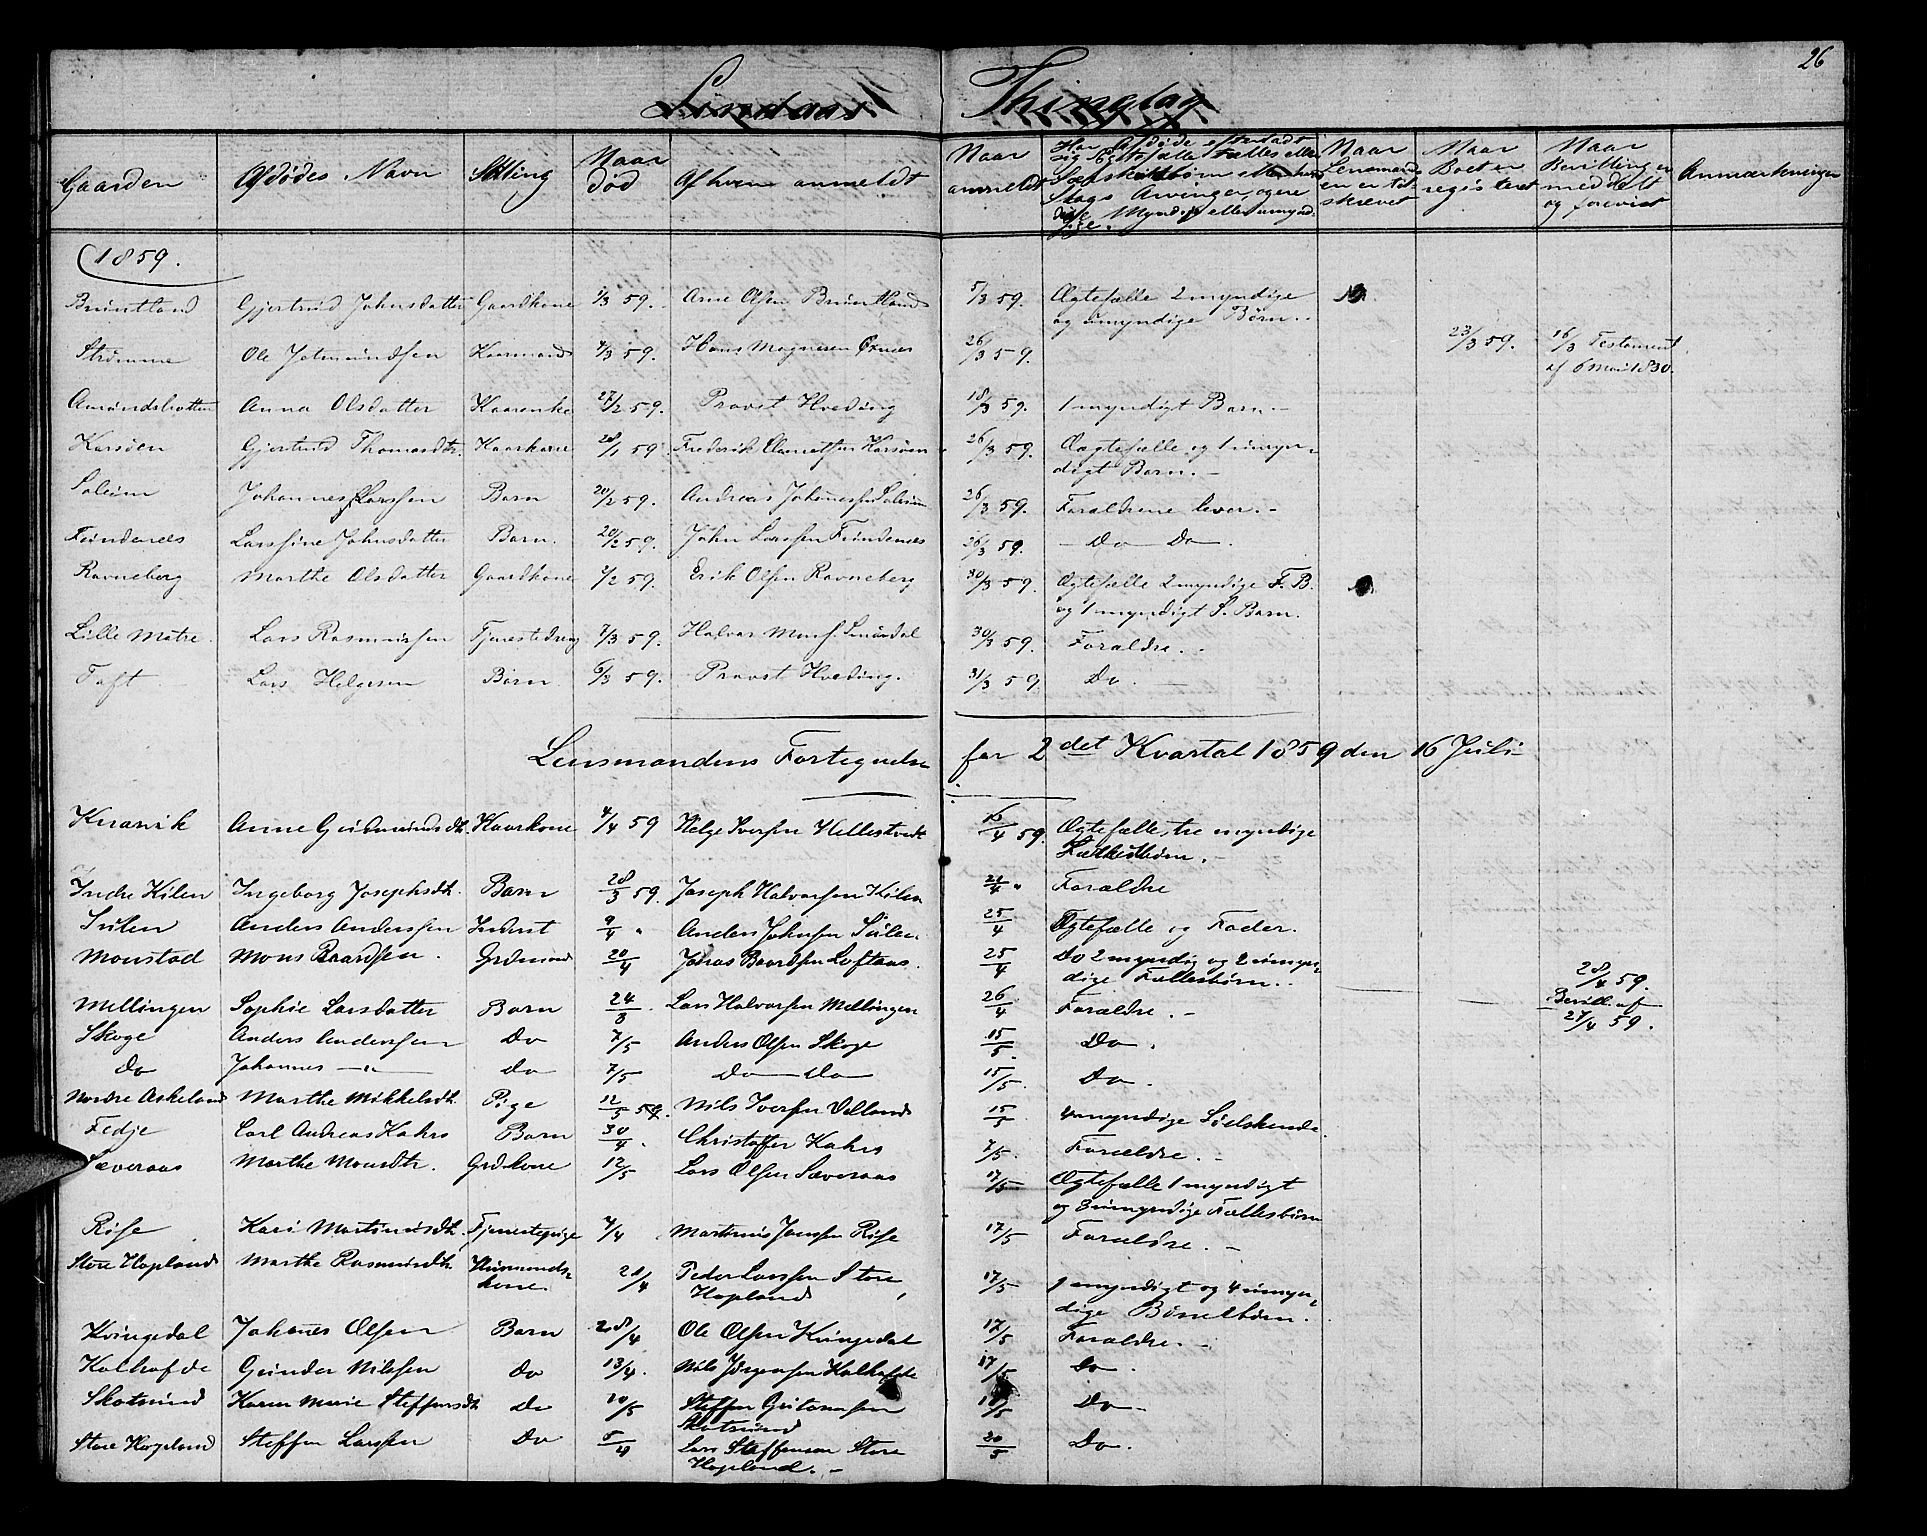 26
Lindaas Thinglag
Gaarden | Afdødes Navn | Stilling | Naar død | Af hvem anmeldt | Naar anmeldt | Har Afdøde efterladt sig Egtefælle Fælles eller Særskildtbørn eller hvad Slags Arvinger, ogere disse Myndige eller umyndige. | Naar Lensmanden er tilskrevet | Naar Boet er registeret | Naar Bevilling er meddelt og forevist | Anmærkninger
1859.
Bruntland | Gjertrud Johnsdatter | Gaardkone | 1/3 59. | Arne Olsen Bruntland | 5/3 59. | Ægtefælle 2 myndige
og umyndige Børn.
Strømme | Ole Jetmundsen | Kaarmand | 4/3 59. | Hans Magnesen Øxnes | 26/3 59. | 23/3 59. | 16/3 Testament
af 6 Mai 1830.
Amundsbotten | Anna Olsdatter | Kaarenke | 27/2 59. | Provst Hveding | 18/3 59. | 1 myndigt Barn.
Karsøen | Gjertrud Thomasdtr. | Kaarkone | 28/1 59 | Frederik Clametsen Karsøen | 26/3 59. | Ægtefælle og 1 umyn-
digt Barn.
Soleim | Johannes Larssen | Barn | 20/2 59. | Andreas Johannessen Soleim | 26/3 59. | Forældrene lever.
Fondenes | Larsine Johnsdatter | Barn. | 20/2 59. | John Larssen Fondenes | 26/3 59. | Do Do.
Ravneberg | Marthe Olsdatter | Gaardkone | 1/2 59. | Erik Olsen Ravneberg | 30/3 59. | Ægtefælle 2 myndige F. B.
og 1 myndigt S. Barn.
Lille Matre. | Lars Rasmussen | Tjenestedreng | 7/3 59. | Halvor Monss. Smaadal | 30/3 59. | Forældre.
Toft | Lars Helgesen | Barn | 6/3 59. | Provst Hveding. | 31/3 59. | Do.
Lensmandens Fortegnelse for 2det Kvartal 1859 den 16 Juli
Knarvik | Anne Gudmundsdtr. | Kaarkone | 4/4 59 | Helge Iversen Hellestvedt | 16/4 59. | Ægtefælle, tre myndige
Fællesbørn.
Indre Kilen | Ingeborg Josephsdtr. | Barn | 28/3 59. | Joseph Halvorsen Kilen | 21/4 " | Forældre
Sulen | Anders Anderssen | Inderst | 9/4 " | Anders Johnsen Sulen. | 25/4 | Ægtefælle og Fader.
Monstad | Mons Baardsen. | Grdmand | 20/4 | Jonas Baardsen Loftaas. | 25/4 | Do 2 myndig og 2 umyn-
dige Fællesbørn. | 28/4 59.
Bevill. af
27/4 59.
Mellingen | Sophie Larsdatter | Barn | 24/3 | Lars Halvorsen Mellingen | 26/4 | Forældre.
Skoge | Anders Anderssen | Do | 7/5 | Anders Olsen Skoge | 15/5. | Do.
Do | Johannes — " — | Do | 7/5 | Do — Do | 15/5. | Do.
Nordre Askeland | Marthe Mikkelsdtr. | Pige | 12/5 59. | Nils Iversen | 15/5 | 4 myndige Sødskende.
Fedje | Carl Andreas Kahrs | Barn | 30/4. | Christoffer Kahrs | 7/5. | Forældre.
Sæveraas | Marthe Monsdtr. | Grdkone | 12/5 | Lars Olsen Sæveraas | 17/5 | Ægtefælle 1 myndigt
og 3 umyndige Fællesbørn
Risse | Kari Martinusdtr. | Tjenestepige | 4/4 | Martinus Jonssen Risse | 17/5 | Forældre.
Store Hopland | Marthe Rasmusdtr. | Huusmands-
kone. | 21/4 | Peder Larssen Store
Hopland | 17/5 | 1 myndigt og 4 umyn-
dige Børnebørn.
Kvingedal | Johanes Olsen | Barn | 28/4 | Ole Olsen Kvingedal | 17/5 | Forældre.
Kalhofde | Gunder Nilssen | Do | 13/4. | Nils Jørgensen Kalhofde | 17/5 | Do.
Skotsund | Karen Marie Steffensdtr. | Do | 10/5 | Steffen Gutormsen
Skotsund | 18/5 | Do
Store Hopland | Steffen Larssen | Do | 5/4 | Lars Steffensen Store
Hopland. | 20/5 | Do.